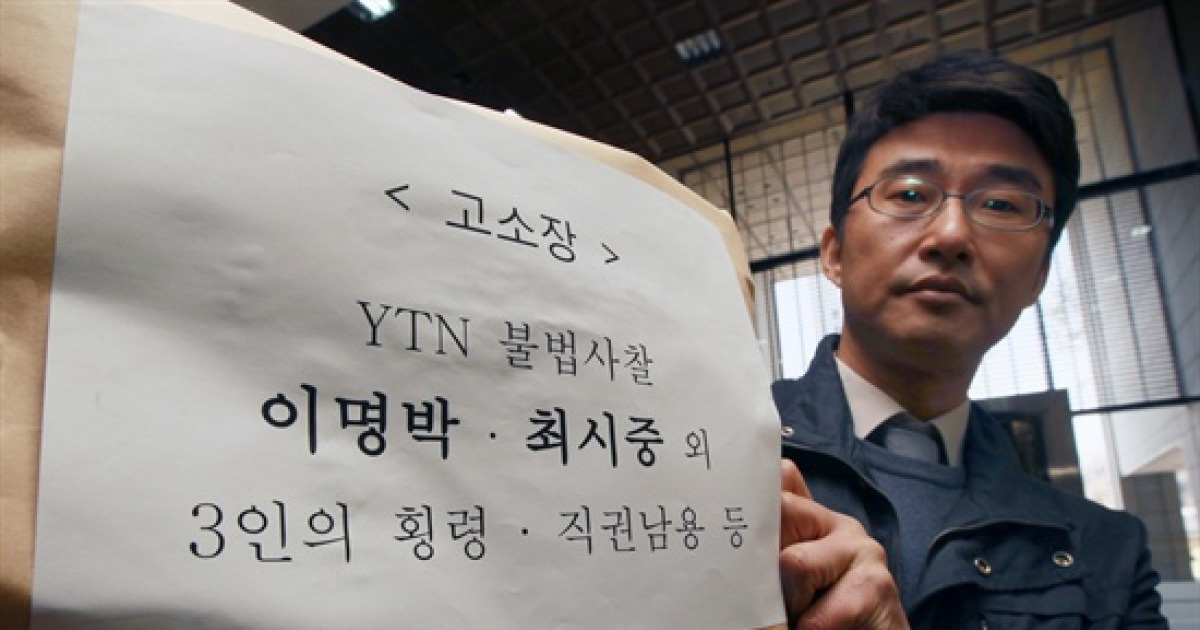 < 고소장 >
YTN 불법사찰
이명박 · 최시중 외
3인의 횡령 · 직권남용 등